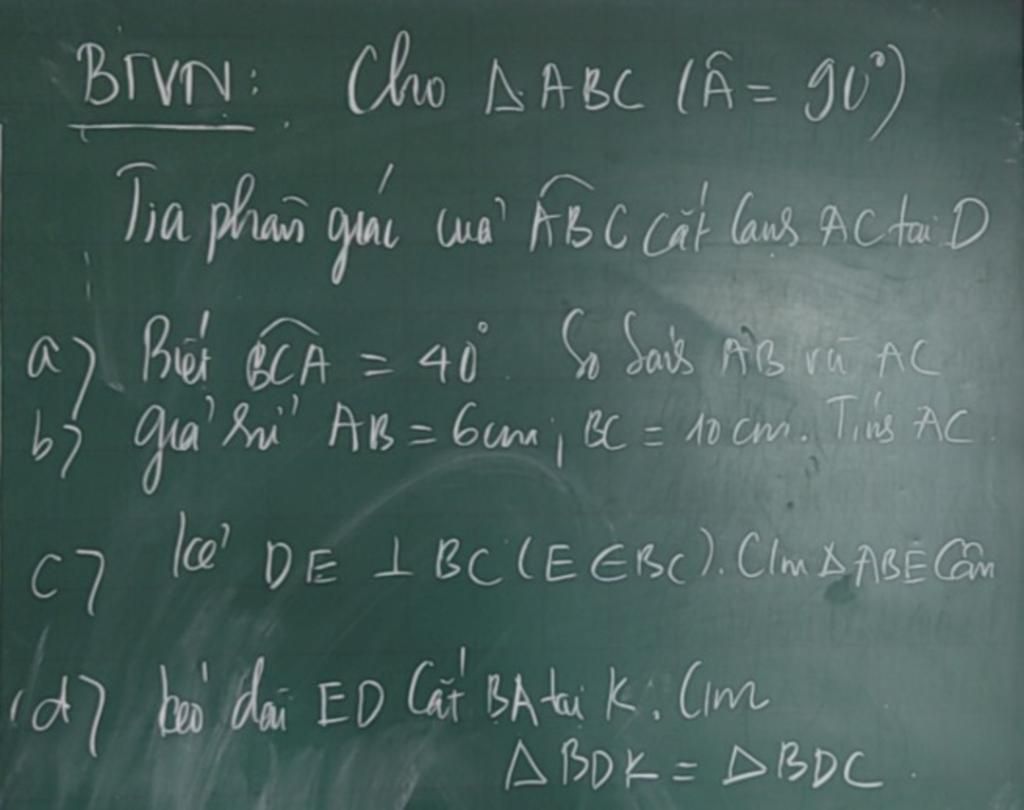 BTVN: Cho Δ ABC (Â = 90°)
Tia phân giác của ABC cắt cạnh AC tại D
a) Biết BCA = 40°. So sánh AB và AC
b) giả sử AB = 6cm; BC = 10cm. Tính AC.
c) kẻ DE ⊥ BC (E ∈ BC). C/m Δ ABE cân
d) kéo dài ED cắt BA tại K. C/m
Δ BDK = Δ BDC.